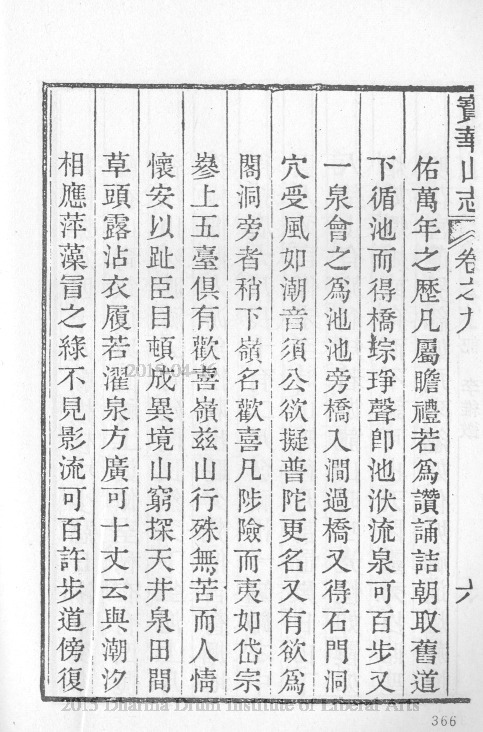 寶華山志 卷之九 六
佑萬年之歷凡屬瞻禮若爲讚誦詰朝取舊道
下循池而得橋琮琤聲卽池洑流泉可百步又
一泉會之爲池池旁橋入澗過橋又得石門洞
穴受風如潮音須公欲擬普陀更名又有欲爲
閣洞旁者稍下嶺名歡喜凡陟險而夷如岱宗
㕘上五臺俱有歡喜嶺茲山行殊無苦而人情
懷安以趾臣目頓成異境山窮探天井泉田間
草頭露沾衣履若濯泉方廣可十丈云與潮汐
相應萍藻冒之綠不見影流可百許步道傍復
2013 Dharma Drum Institute of Liberal Arts
366